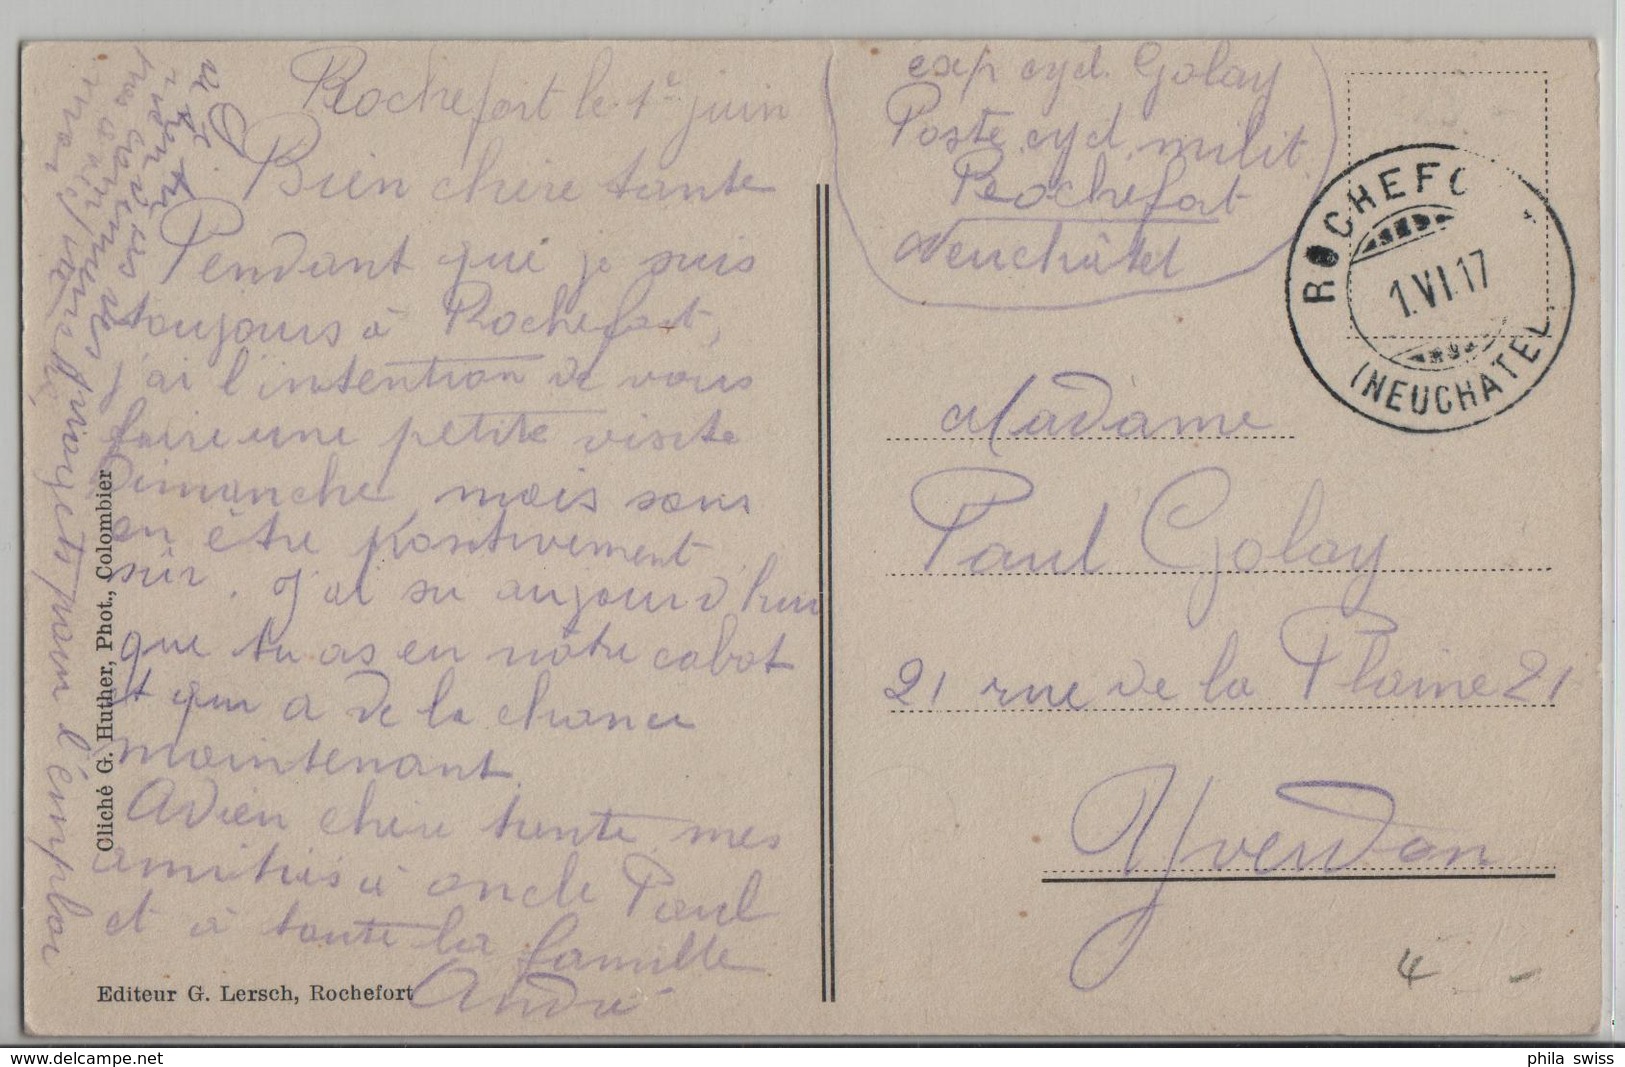 Rochefort le 1e juin
Bien chère tante
Pendant que je suis
toujours à Rochefort,
j'ai l'intention de vous
faire une petite visite
Dimanche, mais sans
en être positivement
sûr. J'ai su aujourd'hui
que tu as eu nôtre cabot
et qui a de la chance
maintenant.
Adieu chère tante, mes
amitiés à oncle Paul
et à toute la famille
André
exp cycl. Golay
Poste cycl. milit.
Rochefort
Neuchâtel
ROCHEFO
1.VI.17
(NEUCHATEL
Madame
Paul Golay
21 rue de la Plaine 21
Yverdon
4
Cliché G. Huther, Phot., Colombier
Editeur G. Lersch, Rochefort
www.delcampe.net
phila_swiss